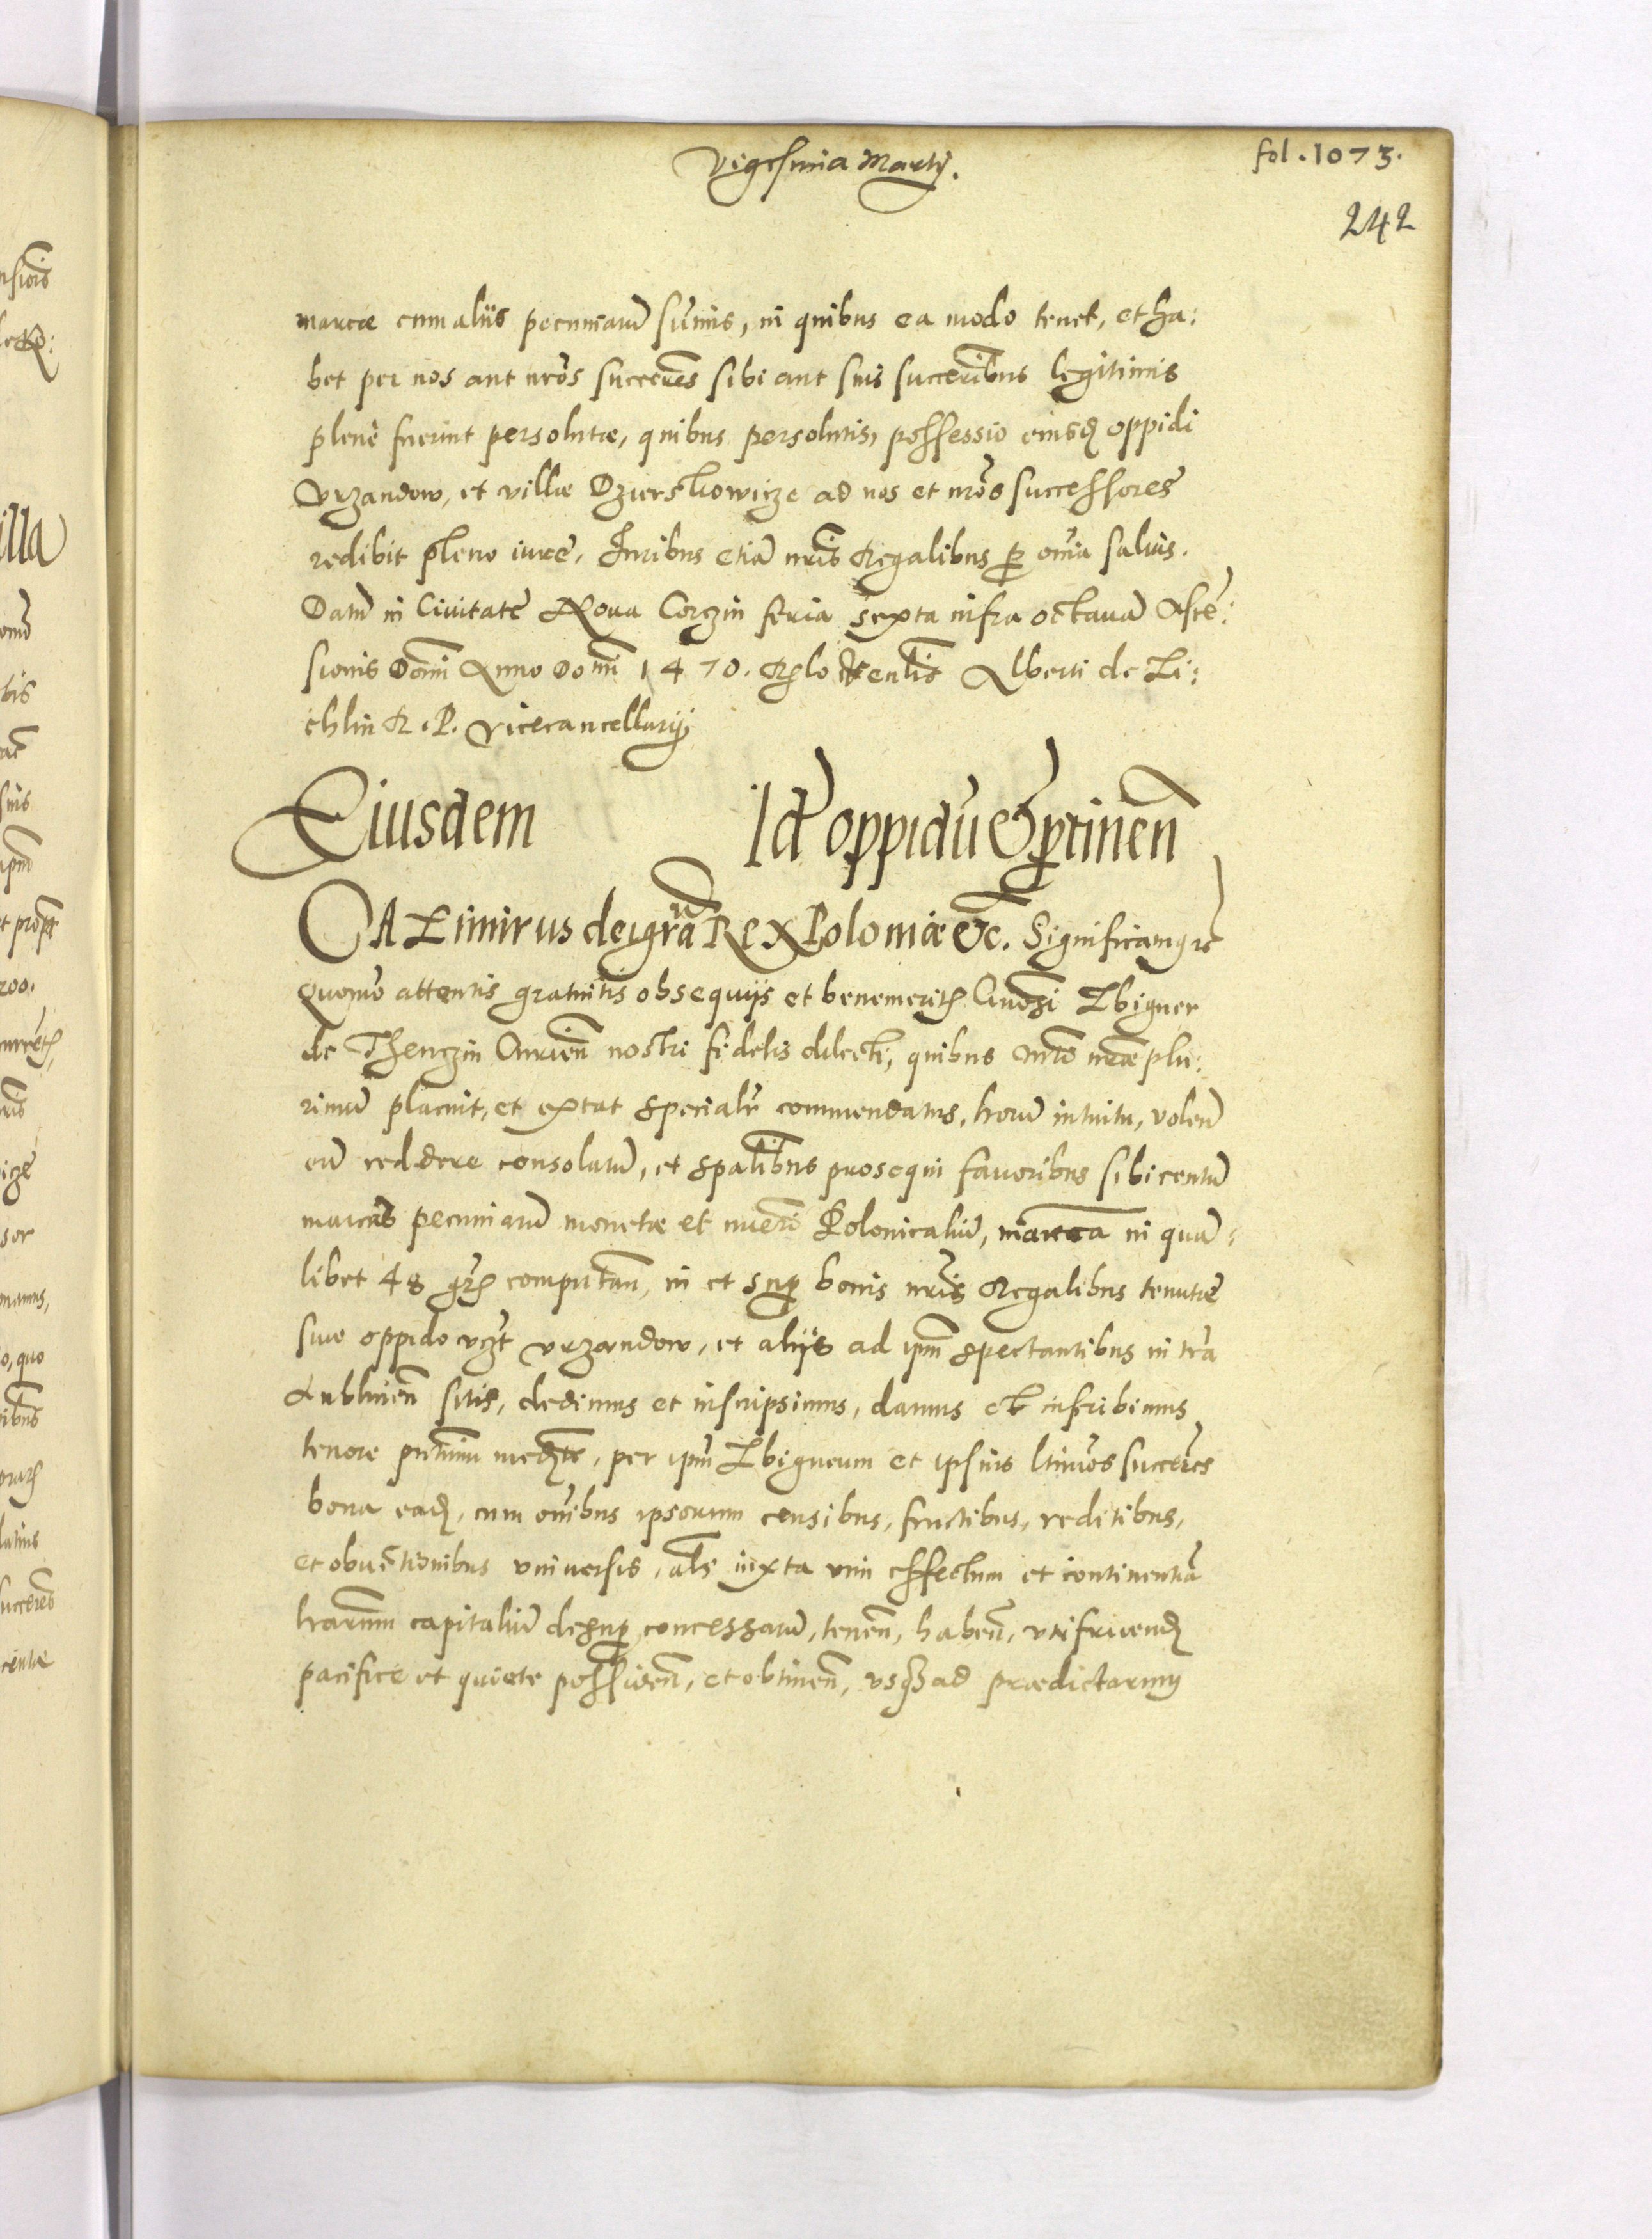 Vigesima Martij.
fol. 1073.
242
marcæ cum aliis pecuniarũ sũmis, in quibus ea modo tenet, et ha:
bet per nos aut nr̃os succeres̃ sibi aut suis succerib̃us legitimis
plenè fuerint persolutæ, quibus persolutis, possessio eiusdꝫ oppidi
Vrzandow, et villæ Dzierzkowicze ad nos et nr̃os successores
redibit pleno iure, Iuribus etiã nr̃is Regalibus ꝑ om̃ia saluis.
Datũ in Ciuitate Noua Corczin feria sexta infra octauã Ascẽ:
sionis Dom̃i Anno Dom̃i 1470. Alberti de Zi:
chlin R. P. Vicecancellarij
Eiusdem Id oppidũ &
CAZimirus dei gr̃a Rex Poloniæ &c. Significamꝰ &
Quomõ attentis gratuitis obsequijs et benemeritꝭ Zbignei
de Thenczin nostri fidelis dilecti, quibus nr̃æ plu:
rimũ placuit, et extat specialr̃ commendatus, horũ intuitu, volen̄
eũ reddere consolatũ, et sp̃alibus prosequi fauoribus sibi centũ
marcas pecuniarũ monetæ et nũeri Polonicaliũ, marca in quã:
libet 48 gr̃ꝭ computan̄, in et suꝑ bonis nr̃is Regalibus tenutæ
siue oppido vcꝫt Vrzandow, et alijs ad ip̃m spectantibus in tr̃a
Lublinen̄ sitis, dedimus et inscripsimus, damus et inscribimus
tenore pñtium med̃te, per ip̃m Zbigneum et ipsius ltimos̃ succeres̃
bona eadꝫ, cum om̃ibus ipsorum censibus, fructibus, reditibus,
et obuẽtionibus vniuersis, al̃s iuxta vim effectum et continentiã
l̃rarum capitaliũ desuꝑ concessarũ, tenen̄, haben̄, vtifruendꝫ
pacifice et quiete possiden̄, et obtinen̄, vsqꝫ ad prædictarum